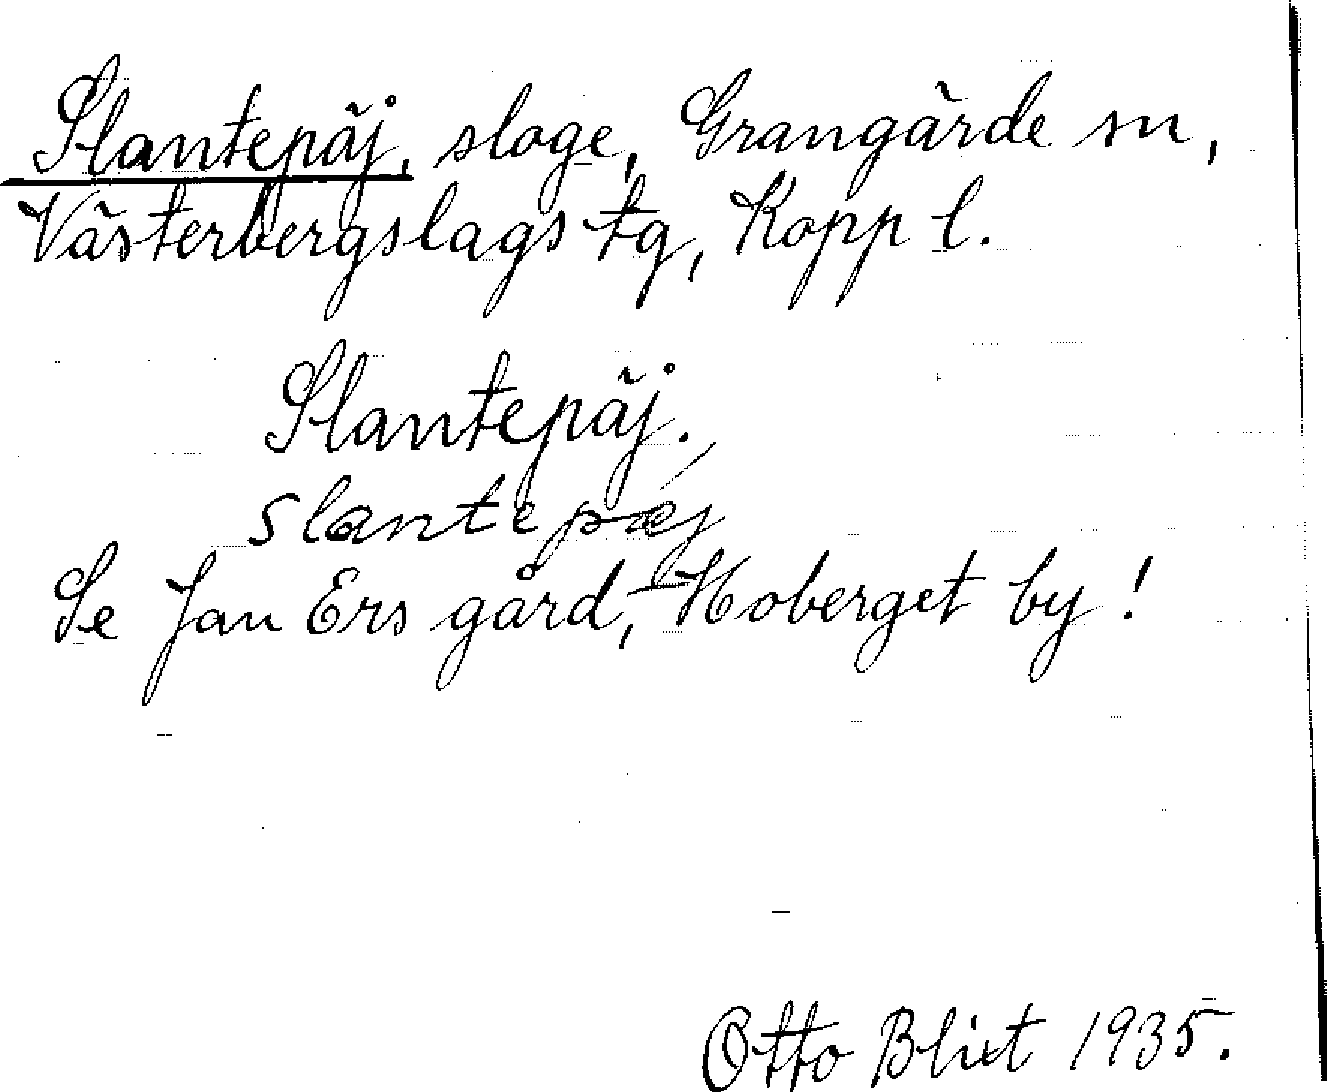 Slantepäj, sloge, Grangärde sn,
Västerbergslags tg, Kopp l.
Slantepäj.
slantepæj
Se Jan Ers gård, Hoberget by!
Otto Blixt 1935.